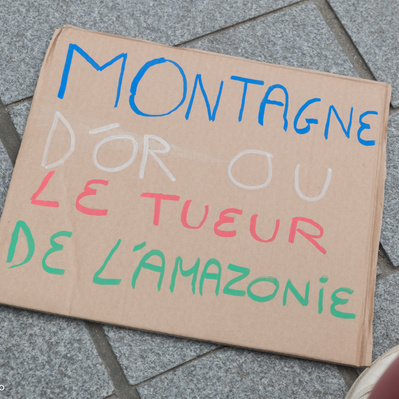 MONTAGNE
D'OR OU
LE TUEUR
DE L'AMAZONiE